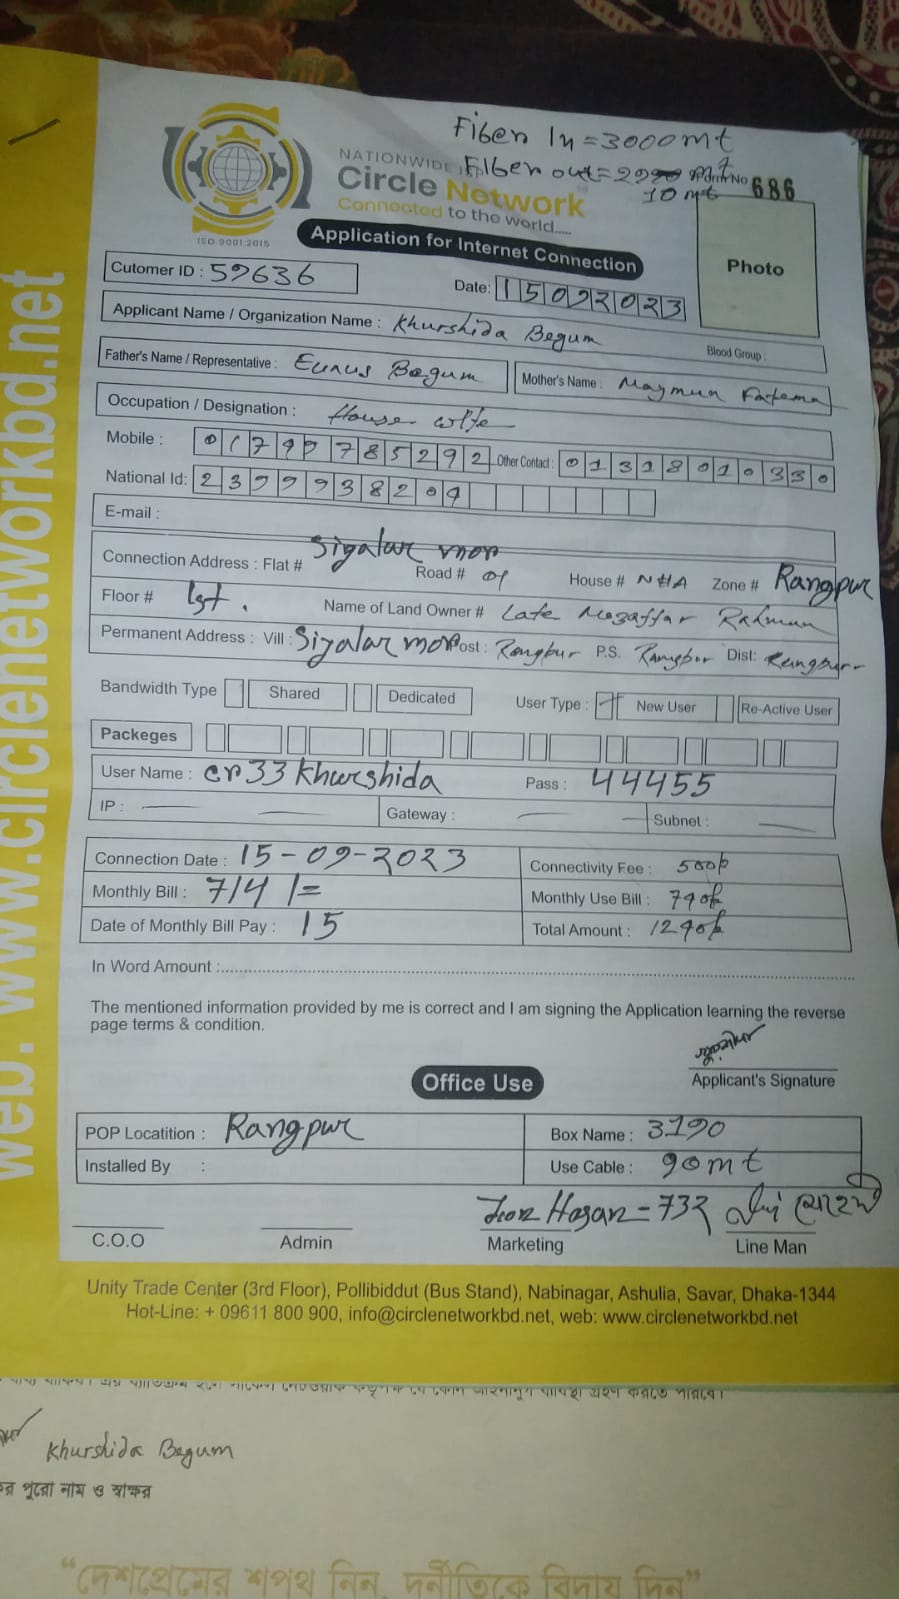 Fiber In = 3000 mt
NATIONWIDE Fiber out = 10 mt Form No 686
Circle Network
Connected to the world.....
ISO 9001:2015
Application for Internet Connection
Photo
Cutomer ID : 59636
Date: 15092023
Applicant Name / Organization Name : Khurshida Begum
Blood Group :
Father's Name / Representative : Eunus Begum Mother's Name : Maymun Fatema
Occupation / Designation : House wife
Mobile : 01799785292 Other Contact : 01318010330
National Id: 2399938209
E-mail :
Connection Address : Flat # Sigalar mor Road # 01 House # N#A Zone # Rangpur
Floor # 1st. Name of Land Owner # Late Mozaffar Rahman
Permanent Address : Vill : Sigalar mor Post : Rangpur P.S. Rangpur Dist: Rangpur
Bandwidth Type Shared Dedicated User Type : New User Re-Active User
Packeges
User Name : cr33khurshida Pass : 44455
IP : Gateway : Subnet :
Connection Date : 15-09-2023 Connectivity Fee : 500/-
Monthly Bill : 714 /= Monthly Use Bill : 790/-
Date of Monthly Bill Pay : 15 Total Amount : 1290/-
In Word Amount :
The mentioned information provided by me is correct and I am signing the Application learning the reverse
page terms & condition.
Applicant's Signature
Office Use
POP Locatition : Rangpur Box Name : 3190
Installed By : Use Cable : 90 mt
Hasan = 732
C.O.O Admin Marketing Line Man
Unity Trade Center (3rd Floor), Pollibiddut (Bus Stand), Nabinagar, Ashulia, Savar, Dhaka-1344
Hot-Line: + 09611 800 900, info@circlenetworkbd.net, web: www.circlenetworkbd.net
web: www.circlenetworkbd.net
Khurshida Begum
পুরো নাম ও স্বাক্ষর
“দেশপ্রেমের শপথ নিন, দুর্নীতিকে বিদায় দিন”